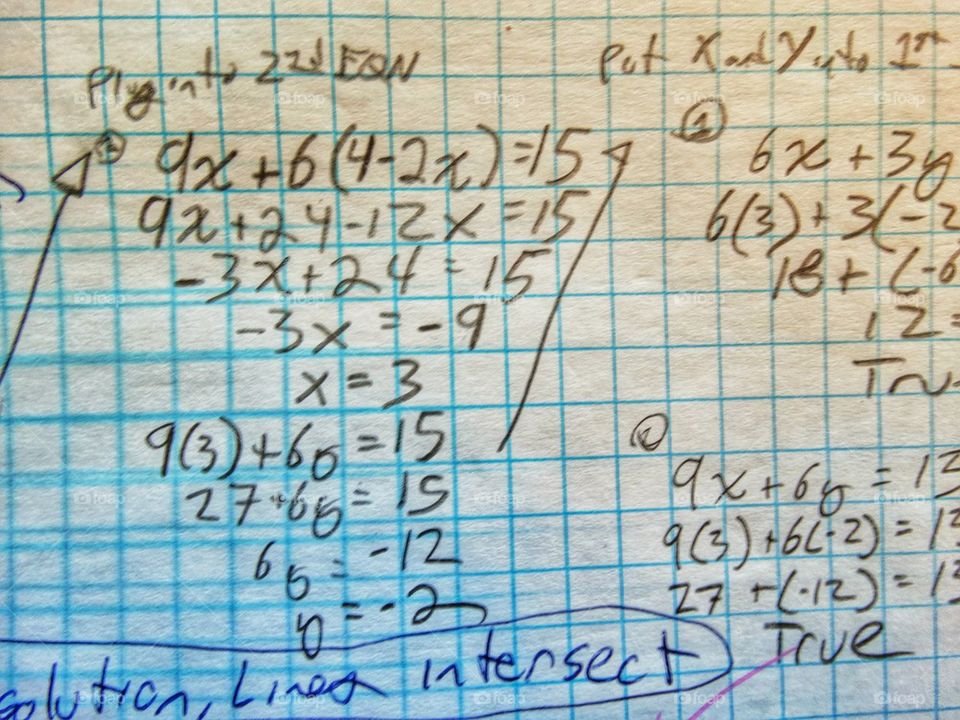 Plug into 2nd EQN
9x + 6(4-2x) = 15
9x + 24 - 12x = 15
-3x + 24 = 15
-3x = -9
x = 3
9(3) + 6y = 15
27 + 6y = 15
6y = -12
y = -2
Put X and Y into 1st
① 6x + 3y
6(3) + 3(-2
18 + (-6
12 =
Tru
9x + 6y = 15
9(3) + 6(-2) = 15
27 + (-12) = 15
True
solution, Lines intersect